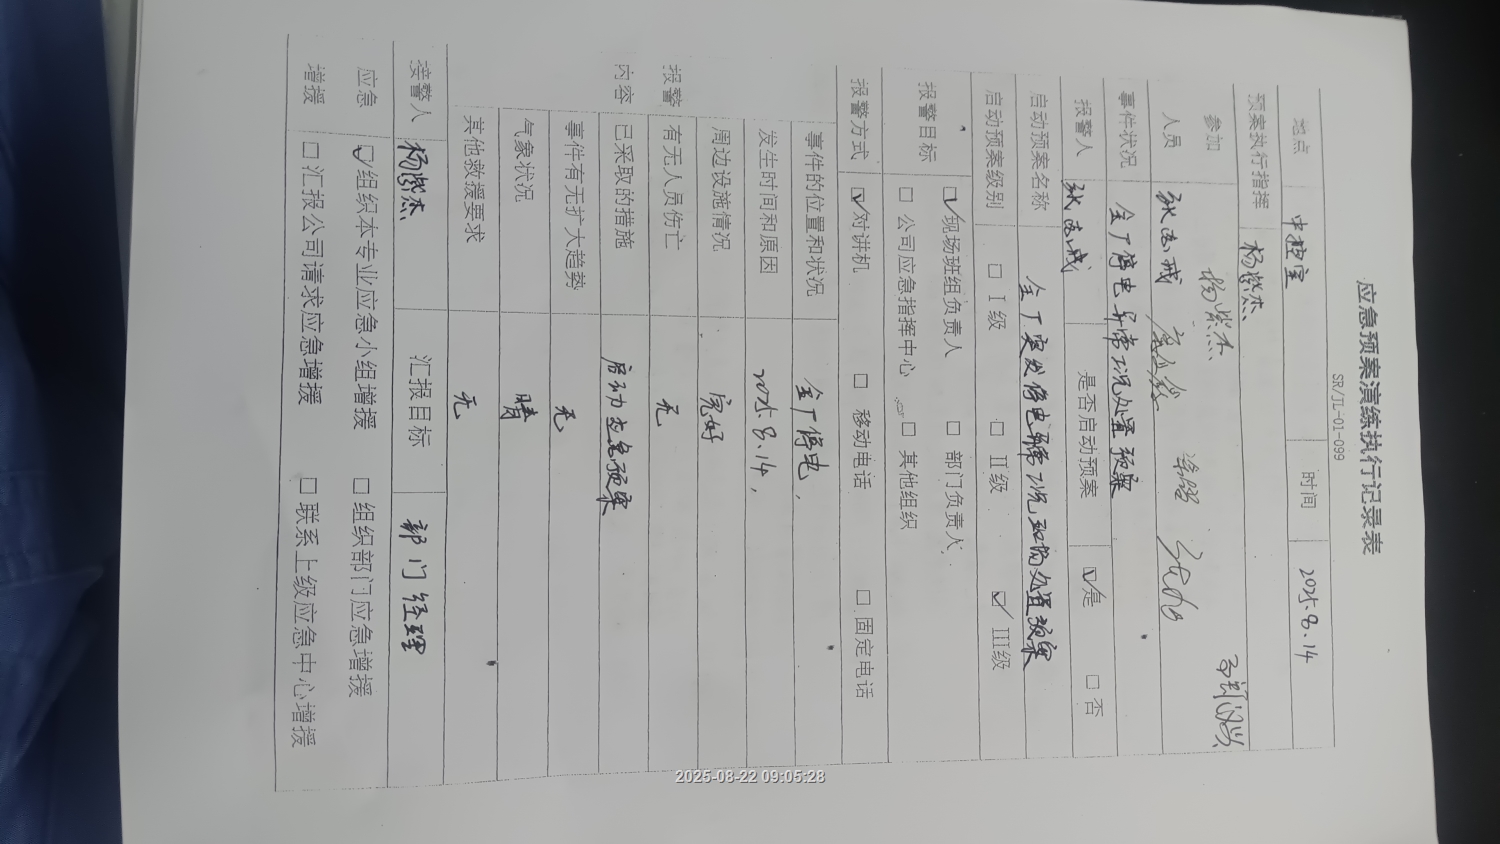 应急预案演练执行记录表
SR/JL-01-099
地点 中控室 时间 2025.8.14
预案执行指挥 杨紫杰
参加人员 杨紫杰
事件状况 全厂停电异常状况处置预案
报警人 是否启动预案 ☑是 □否
启动预案名称 全厂突发停电异常状况现场处置预案
启动预案级别 □Ⅰ级 □Ⅱ级 ☑Ⅲ级
报警目标 ☑现场班组负责人 □部门负责人
□公司应急指挥中心 □其他组织
报警方式 ☑对讲机 □移动电话 □固定电话
报警内容
事件的位置和状况 全厂停电,
发生时间和原因 2025.8.14,
周边设施情况 完好
有无人员伤亡 无
已采取的措施 启动应急预案
事件有无扩大趋势 无
气象状况 晴
其他救援要求 无
接警人 杨紫杰 汇报目标 部门经理
应急增援 ☑组织本专业应急小组增援 □组织部门应急增援
□汇报公司请求应急增援 □联系上级应急中心增援
2025-08-22 09:05:28